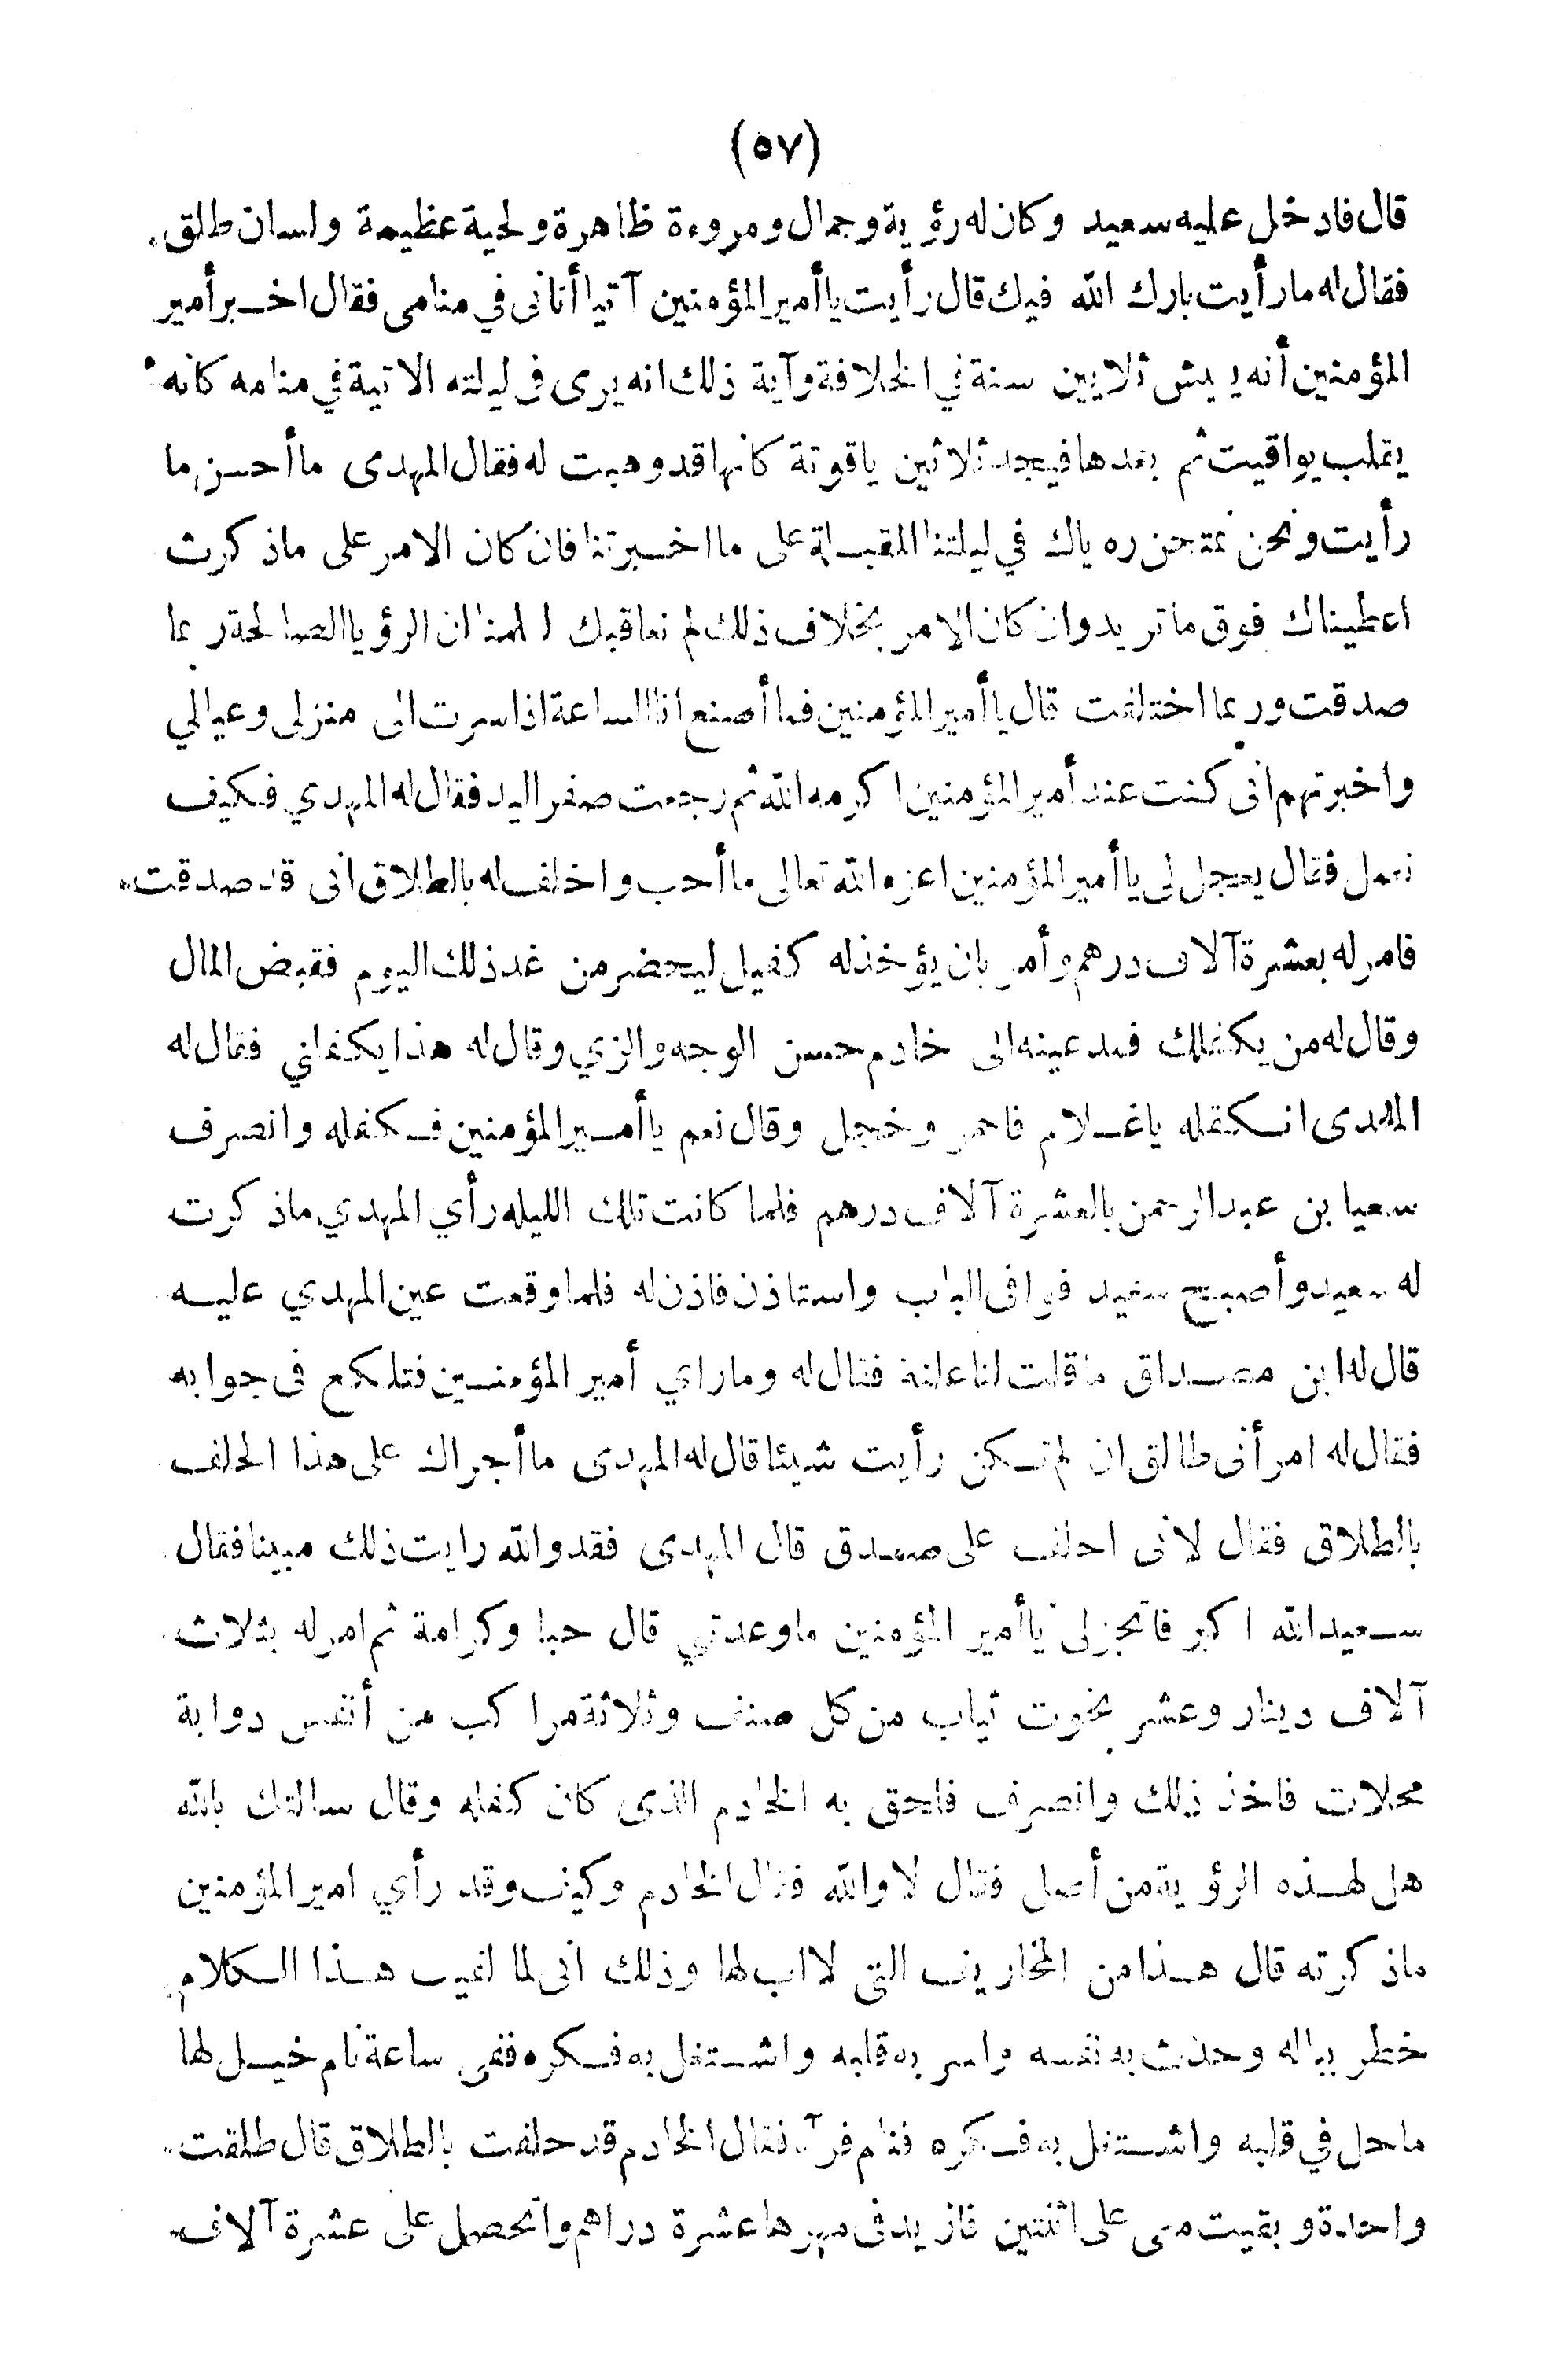 (٥٧)
قال فادخل عليه سعيد وكان له رؤية وجمال ومروءة ظاهرة ولحية عظيمة ولسان طلق
فقال له ما رأيت بارك الله فيك قال رأيت يا أمير المؤمنين آتيا أتاني في منامى فقال اخبر أمير
المؤمنين أنه يعيش ثلاثين سنة في الخلافة وآية ذلك انه يرى فى ليلته الاتية في منامه كانه
يقلب يواقيت ثم يعدها فيجد ثلاثين ياقوتة كانها قد وهبت له فقال المهدى ما أحسن ما
رأيت ونحن نمتحن رؤياك في ليلتنا المقبلة على ما اخبرتنا فان كان الامر على ما ذكرت
اعطيناك فوق ما تريد وان كان الامر بخلاف ذلك لم نعاقبك لعلمنا ان الرؤيا الصالحة ربما
صدقت وربما اختلفت قال يا أمير المؤمنين فما أصنع انا الساعة اذا سرت الى منزلى وعيالي
واخبرتهم انى كنت عند أمير المؤمنين اكرمه الله ثم رجعت صفر اليد فقال له المهدي فكيف
نعمل فقال يعجل لى يا أمير المؤمنين اعزه الله تعالى ما أحب واحلف له بالطلاق انى قد صدقت
فامر له بعشرة آلاف درهم وأمر بان يؤخذ له كفيل ليحضر من غد ذلك اليوم فقبض المال
وقال له من يكفلك فمد عينه الى خادم حسن الوجه والزي وقال له هذا يكفلني فقال له
المهدى اتكفله يا غلام فاحمر وخجل وقال نعم يا أمير المؤمنين فكفله وانصرف
سعيد بن عبد الرحمن بالعشرة آلاف درهم فلما كانت تلك الليله رأي المهدي ما ذكرت
له سعيد وأصبح سعيد فوافى الباب واستاذن فاذن له فلما وقعت عين المهدي عليه
قال له ابن مصداق ما قلت لنا علنة فقال له وما راي أمير المؤمنين فتلكع فى جوابه
فقال له امرأتى طالق ان لم تكن رأيت شيئا قال له المهدى ما أجراك على هذا الحلف
بالطلاق فقال لانى احلف على صدق قال المهدى فقد والله رايت ذلك مبينا فقال
سعيد الله اكبر فانجز لى يا أمير المؤمنين ما وعدتني قال حبا وكرامة ثم امر له بثلاث
آلاف دينار وعشر تخوت ثياب من كل صنف وثلاثة مراكب من أنفس دوابة
محلات فاخذ ذلك وانصرف فلحق به الخادم الذى كان كفله وقال سالتك بالله
هل لهذه الرؤية من أصل فقال لا والله فقال الخادم وكيف وقد رأي امير المؤمنين
ما ذكرته قال هذا من المخاريف التي لا اب لها وذلك انى لما القيت هذا الكلام
خطر بباله وحدث به نفسه واسر به قلبه واشتغل به فكره ففى ساعة نام خيل لها
ما حل في قلبه واشتغل به فكره فنام فرآه فقال الخادم قد حلفت بالطلاق قال طلقت
واحدة وبقيت معى على اثنتين فازيد فى مهرها عشرة دراهم واتحصل على عشرة آلاف